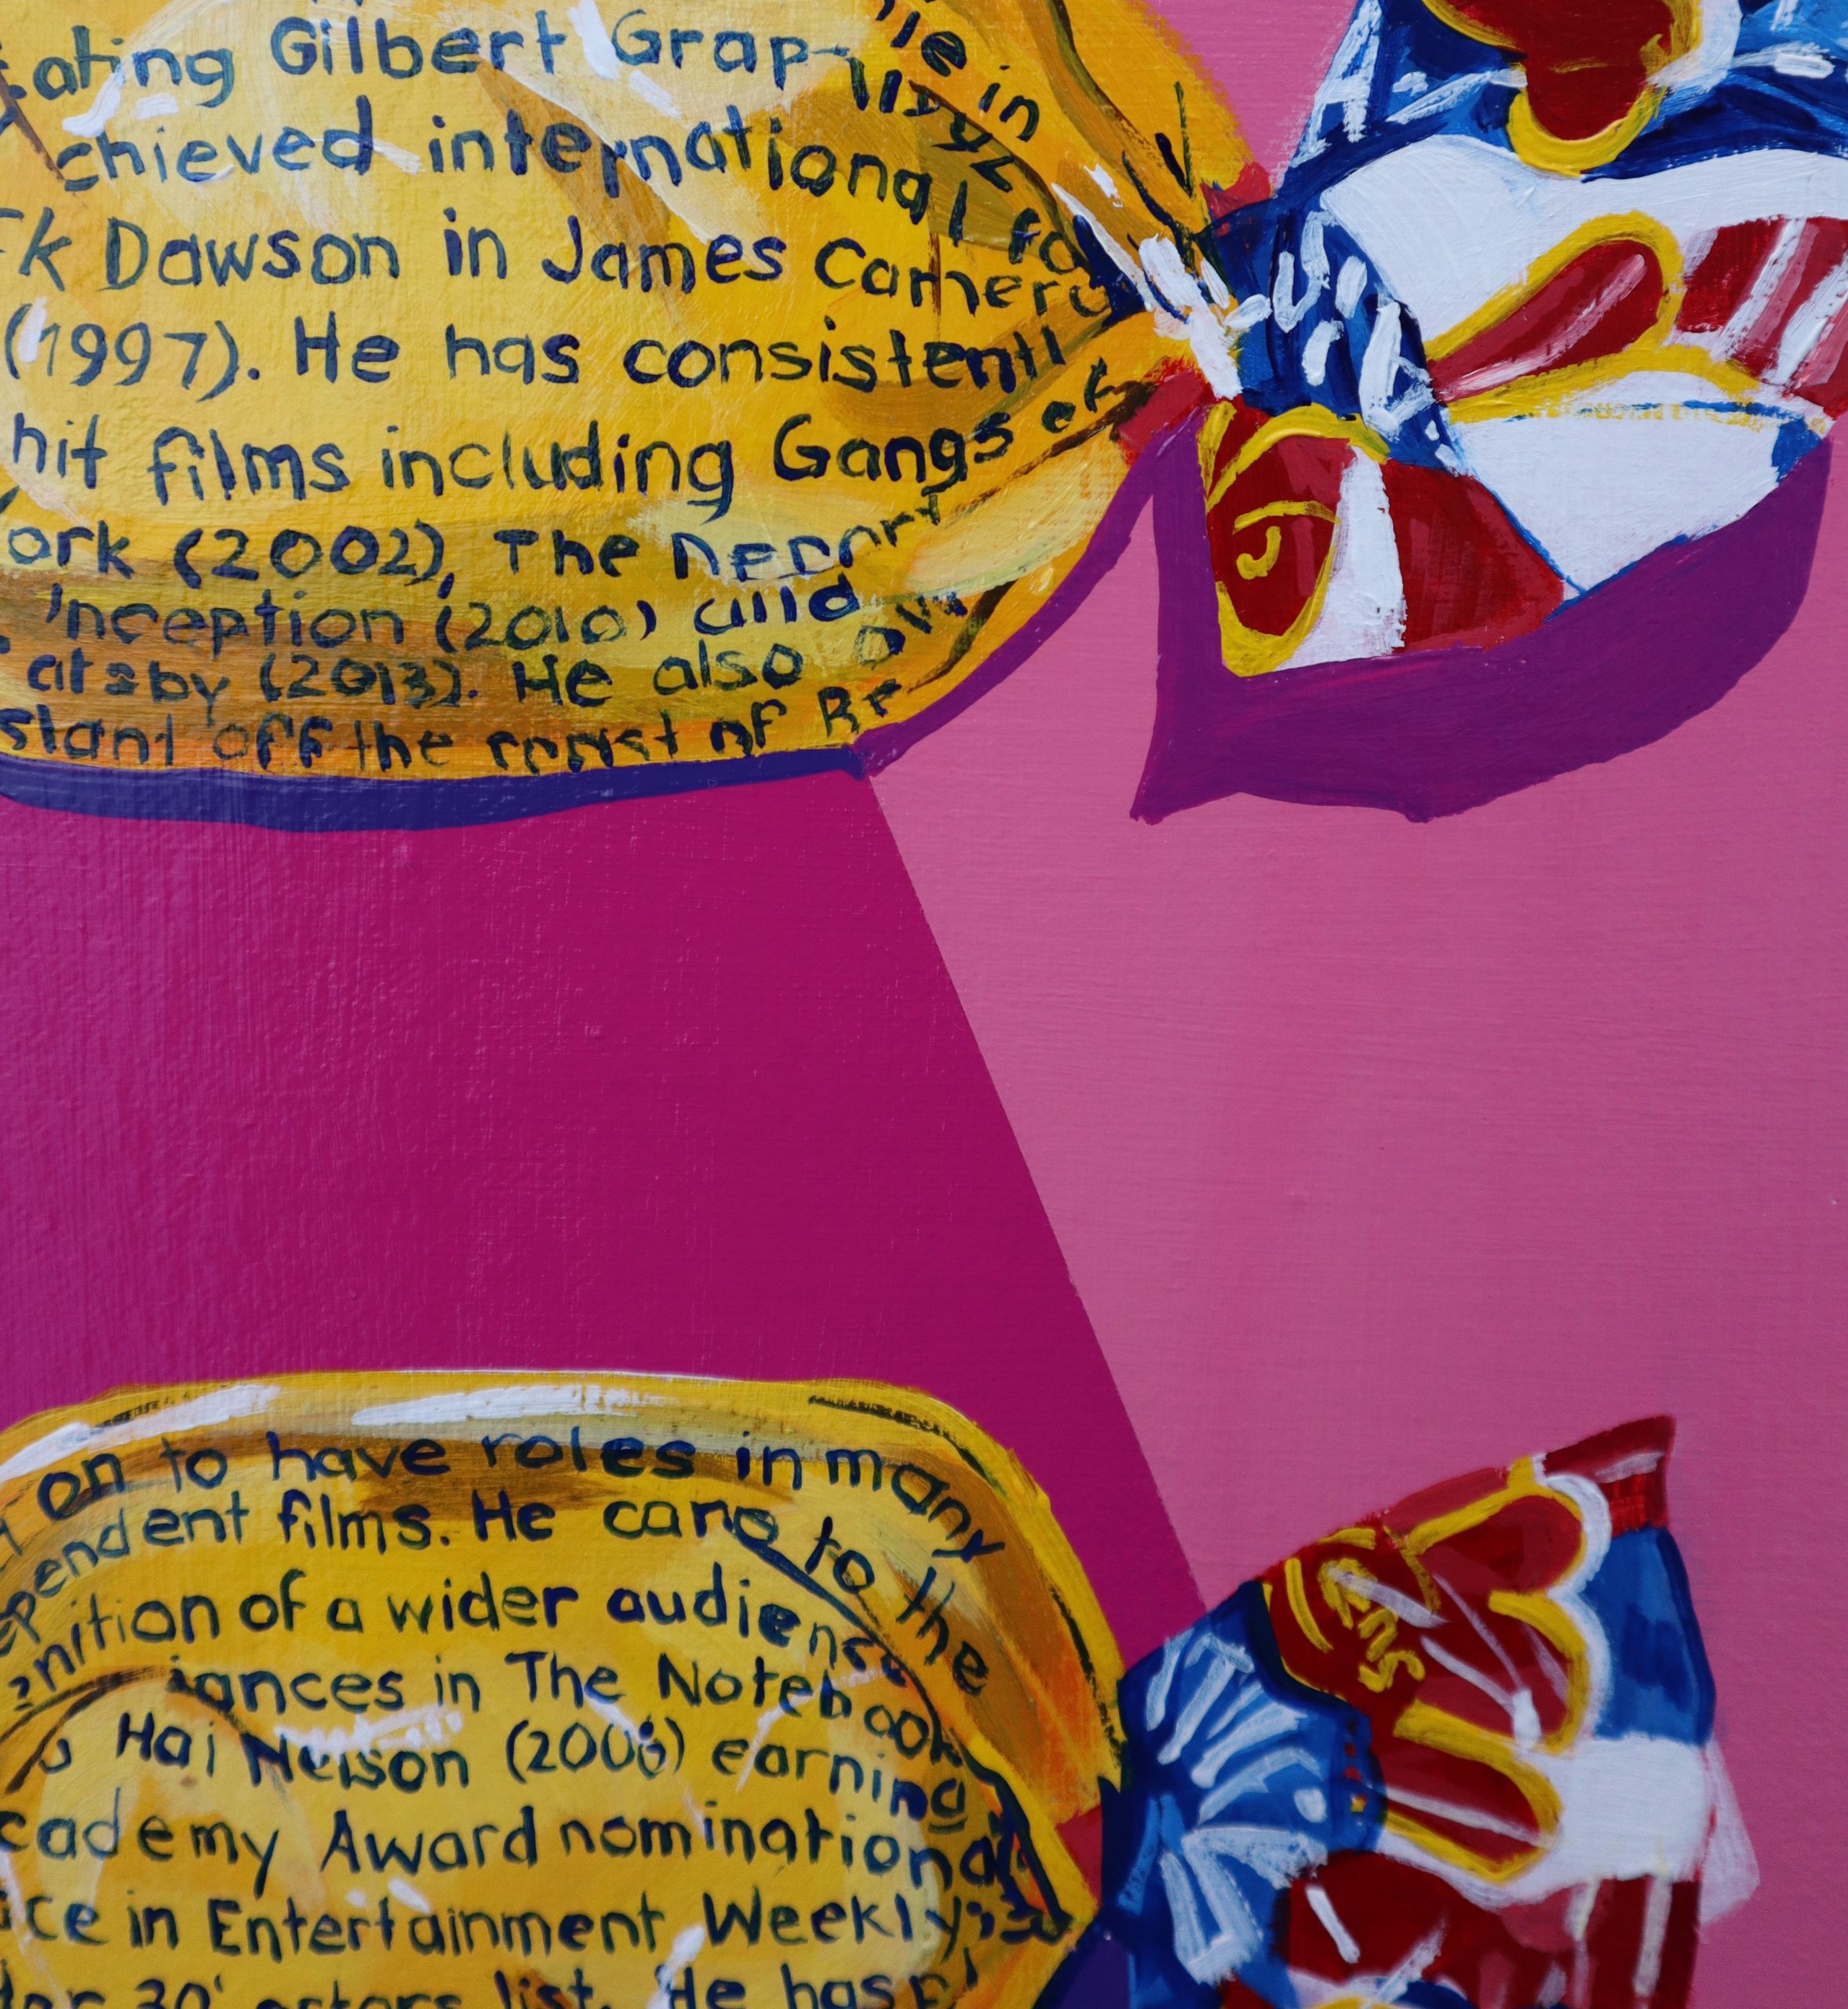 ating Gilbert Grap
chieved international fa
k Dawson in James Camero
(1997). He has consistentl
hit films including Gangs of
ork (2002), The
Inception (2010) and
atsby (2013). He also own
off the of Be
on to have roles in many
ependent films. He came to the
nition of a wider audience
ances in The Notebook
(2006) earning
cademy Award nomination a
ce in Entertainment Weekly's
30' actors list. He has pl